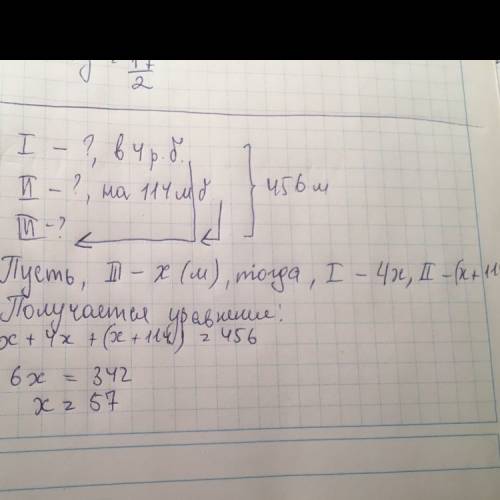 17
2
I - ?, в 4 р. б.
II - ?, на 114 м б } 456 м
III - ?
Пусть, III - x (м), тогда, I - 4x, II - (x + 11
Получается уравнение:
x + 4x + (x + 114) = 456
6x = 342
x = 57